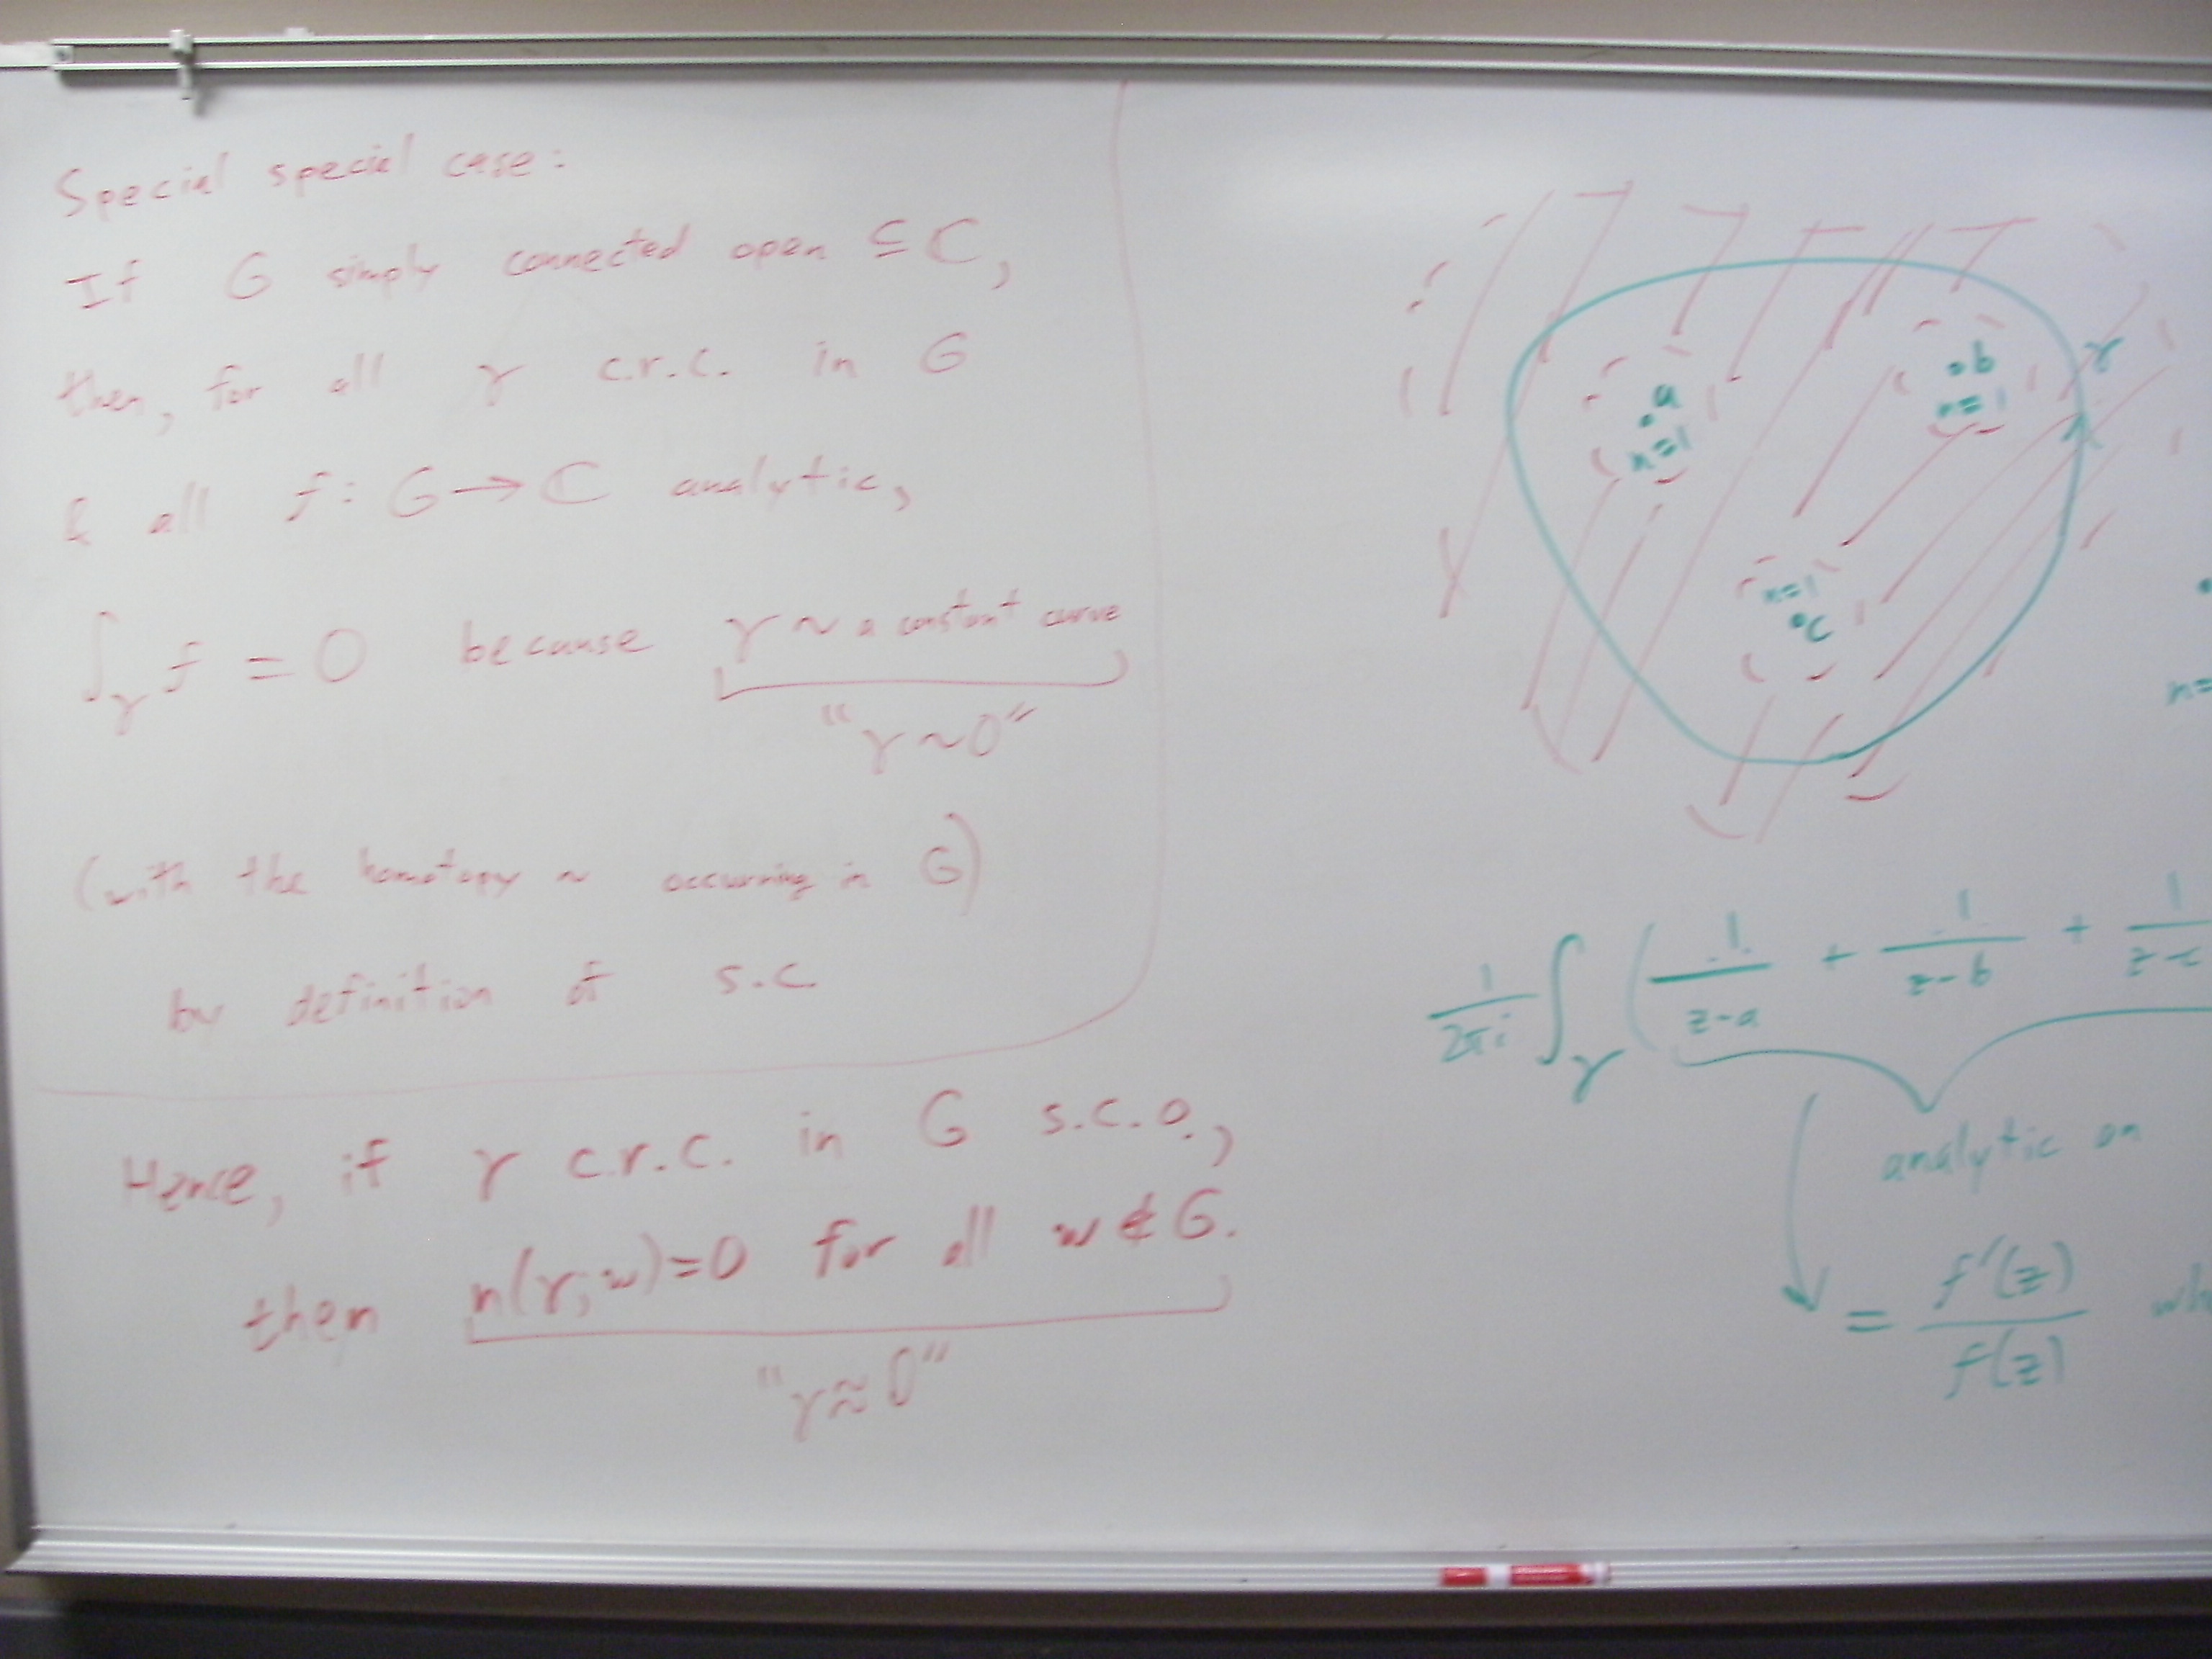 Special special case:
If G simply connected open ⊆ ℂ,
then, for all γ c.r.c. in G
& all f: G → ℂ analytic,
∫_γ f = 0 because γ ~ a constant curve
"γ ~ 0"
(with the homotopy ~ occurring in G)
by definition of s.c.
Hence, if γ c.r.c. in G s.c.o.,
then n(γ; w) = 0 for all w ∉ G.
"γ ≈ 0"
γ
a
n=1
b
n=1
n=1
c
n=
1/2πi ∫_γ ( 1/z-a + 1/z-b + 1/z-c
analytic on
= f'(z)/f(z)